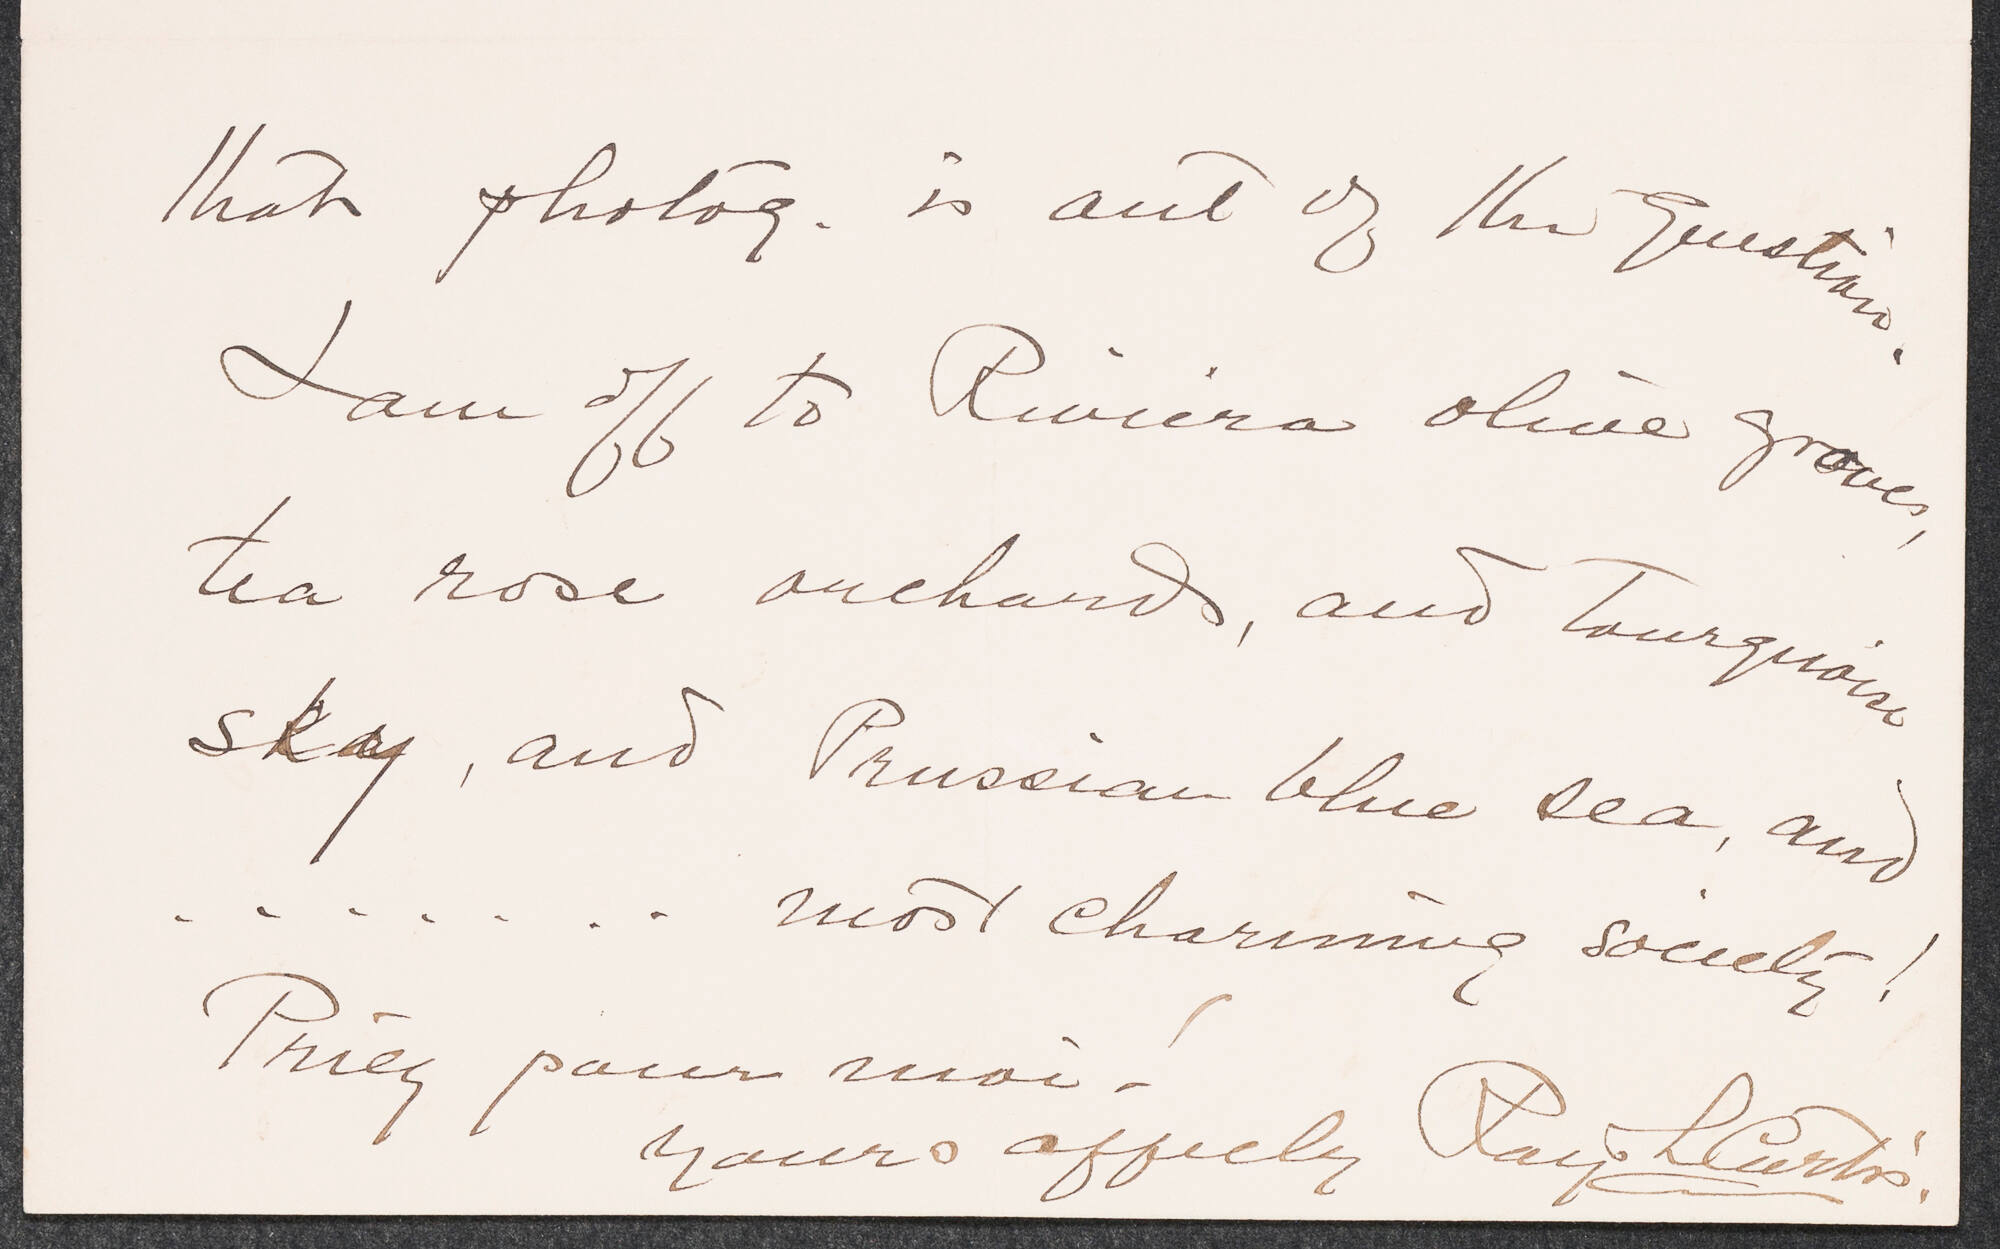 that photog. is out of the question.
I am off to Riviera olive groves,
tea rose orchards, and Tourquoise
sky, and Prussian blue sea, and
. . . . . . . most charming society!
Priez pour moi!
yours affecly Ralph Curtis.